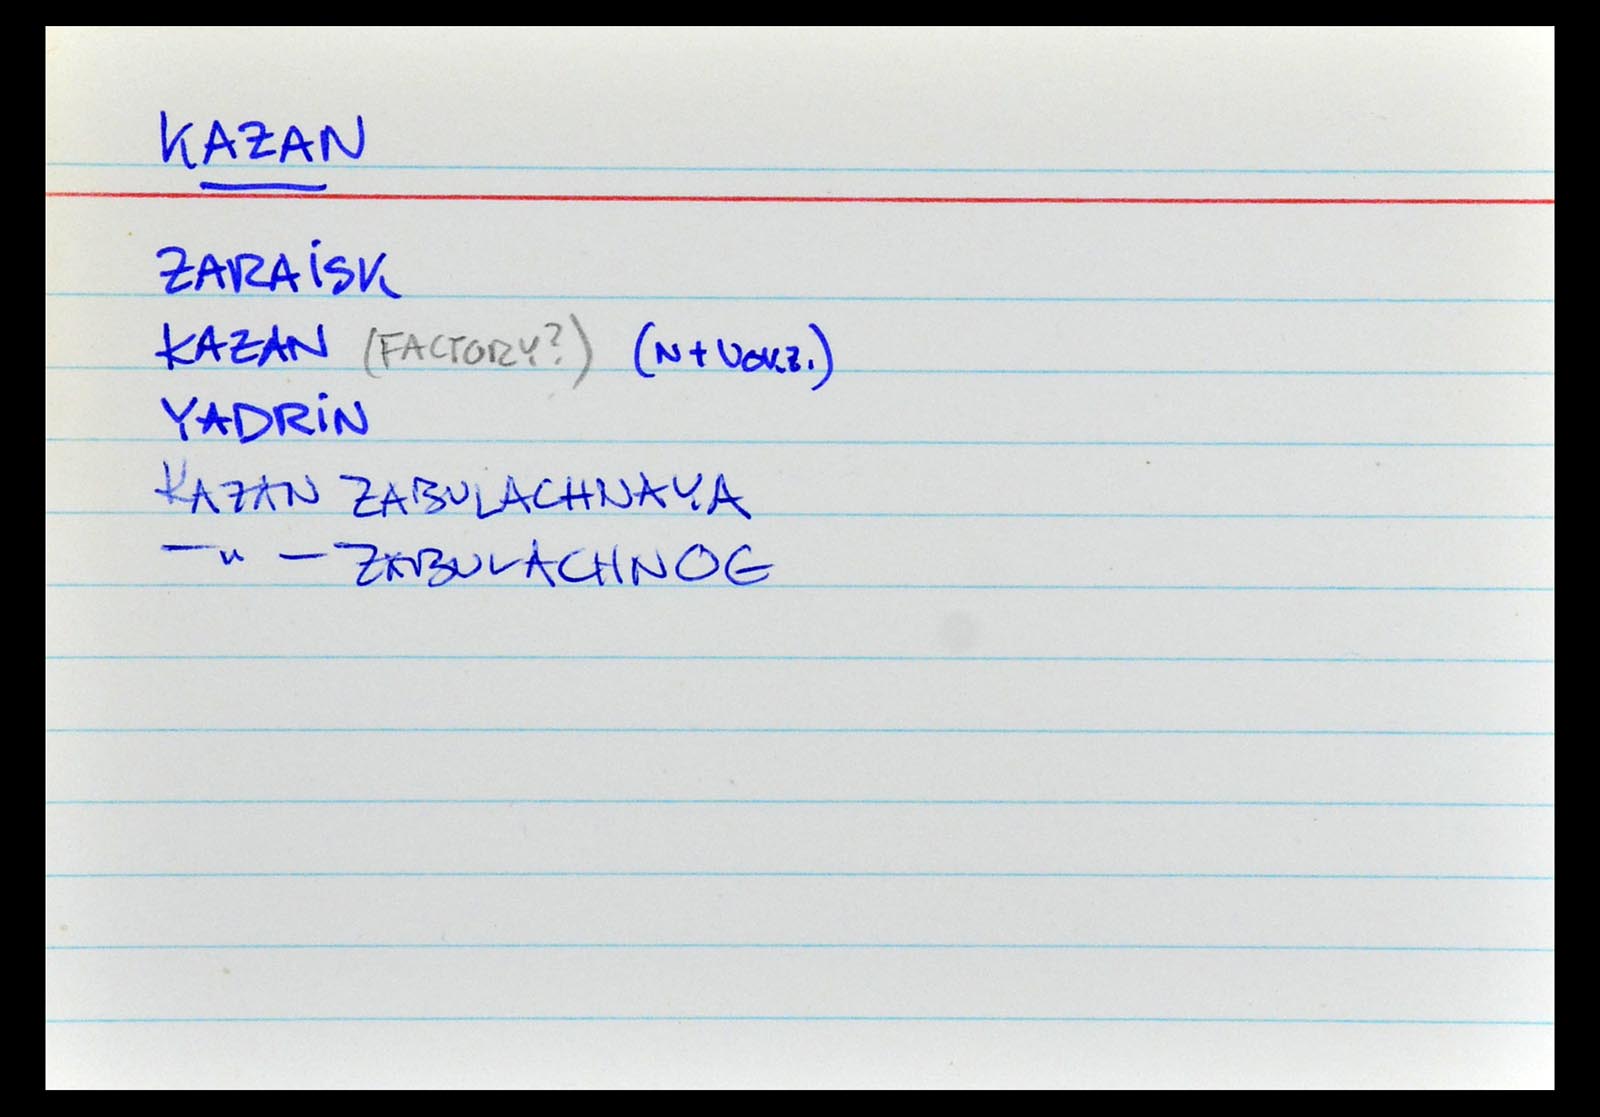 KAZAN
ZARAiSK
KAZAN (FACTORY?) (N+VOKZ.)
YADRiN
KAZAN ZABULACHNAYA
—"— ZABULACHNOE